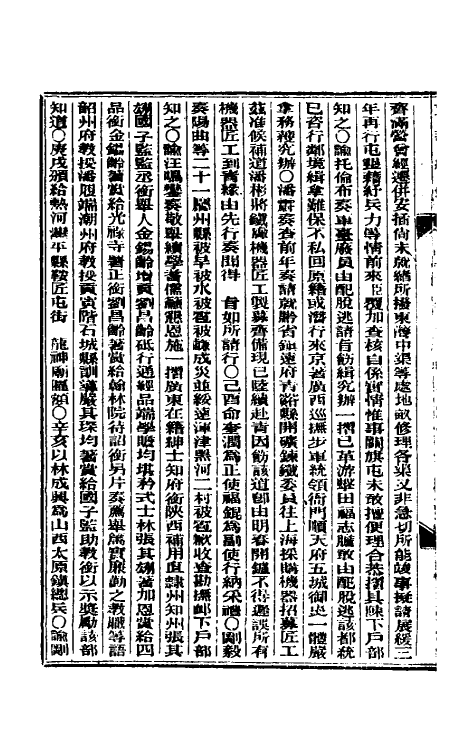 齊滿營曾經選併安插尚未就緒所撥東薄中渠等處地畝修理各渠又非急切所能竣事擬請展緩三
年再行屯墾藉紓兵力等情前來臣覆加查核自係實情惟事關旗屯未敢擅便理合恭摺具陳下戶部
知之○諭托倫布奏軍臺廢員由配脫逃請旨飭緝究辦一摺已革游擊田福志膽敢由配脫逃該都統
已咨行鄰境緝拿難保不私回原籍或潛行來京著廣西巡撫步軍統領衙門順天府五城御史一體嚴
拿務獲究辦○潘霨奏查前年奏請就黔省鎮遠府青谿縣開礦鍊鐵委員往上海採購機器招募匠工
茲准候補道潘彬將鐵廠機器匠工製募齊備現已陸續赴青因飭該道即由明春開鑪不得遲誤所有
機器匠工到青緣由先行奏聞得旨如所請行○己酉命奎潤為正使福錕為副使行納采禮○剛毅
奏陽曲等二十一廳州縣被旱被水被雹被蟲成災並綏遠渾津黑河二村被雹歉收查勘撫卹下戶部
知之○諭汪鳴鑾奏敬舉績學耆儒籲懇恩施一摺廣東在籍紳士知府銜陝西補用直隸州知州張其
𦒎國子監監丞銜舉人金錫齡增貢劉昌齡砥行通經品端學贍均堪矜式士林張其𦒎著加恩賞給四
品銜金錫齡著賞給光祿寺署正銜劉昌齡著賞給翰林院待詔銜另片奏薦舉篤實廉勤之教職等語
韶州府教授潘履端潮州府教授黃寅階石城縣訓導嚴其琛均著賞給國子監助教銜以示獎勵該部
知道○庚戌頒給熱河灤平縣鞍匠屯街龍神廟匾額○辛亥以林成興為山西太原鎮總兵○諭剛